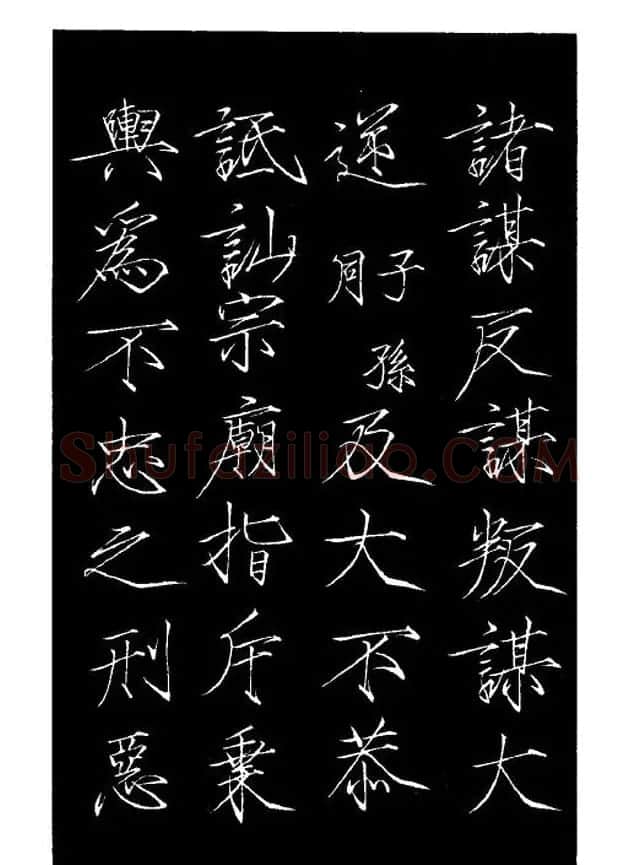 諸謀反謀叛謀大
逆子孫同及大不恭
詆訕宗廟指斥乘
輿爲不忠之刑惡
Shufaziliao.COM